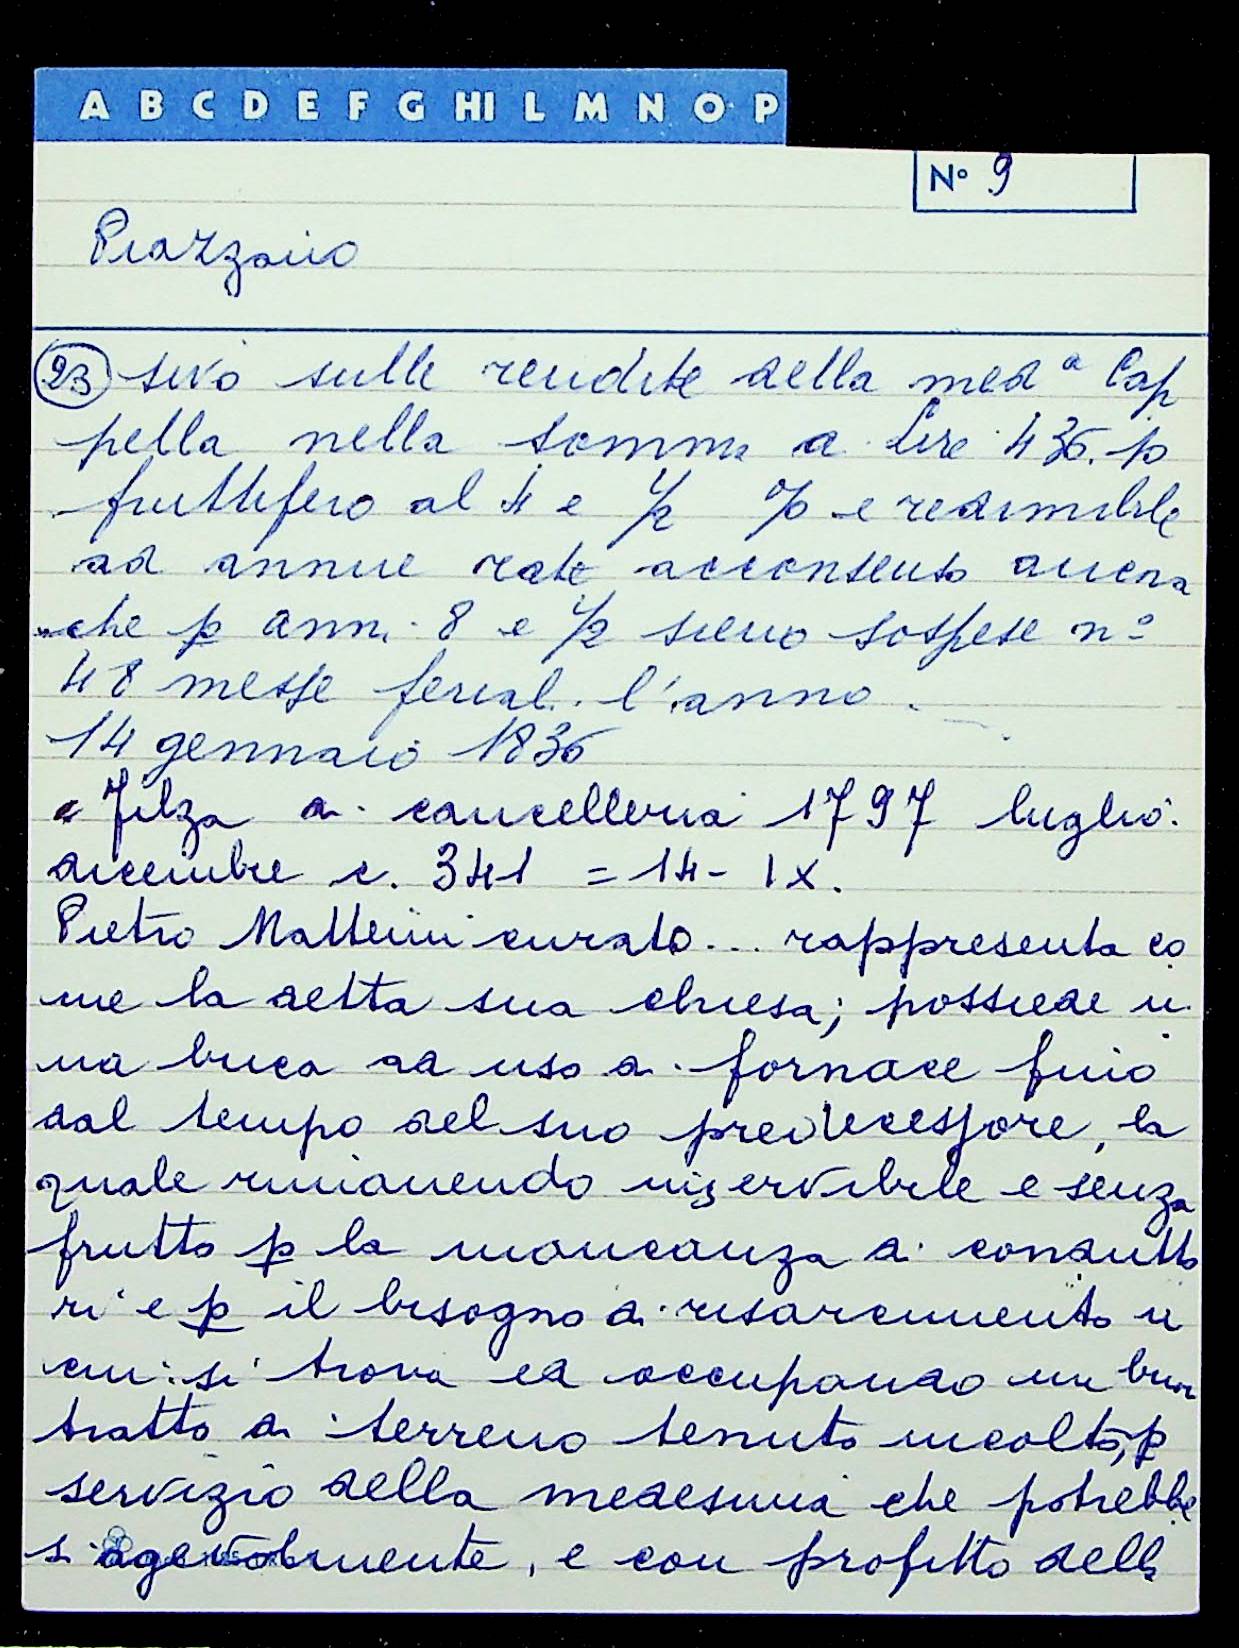 A B C D E F G HI L M N O P
N° 9
Piazzano
23 sivo sulle rendite della med.ª Cap
pella nella somma di Lire 436. p
fruttifero al 4 e 1/2 % e redimibile
ad annue rate acconsento ancora
che p anni 8 e 1/2 sieno sospese n°
48 messe feriali l'anno.
14 gennaio 1836
Filza di cancelleria 1797 luglio
dicembre c. 341 = 14 - IX.
Pietro Matteini curato... rappresenta co
me la detta sua chiesa; possiede u
na buca ad uso di fornace fino
dal tempo del suo predecessore, la
quale rimanendo inservibile e senza
frutto p la mancanza di condutto
ri e p il bisogno di risarcimento in
cui si trova ed occupando un buon
tratto di terreno tenuto incolto, p
servizio della medesima che potrebbe
si agevolmente, e con profitto della